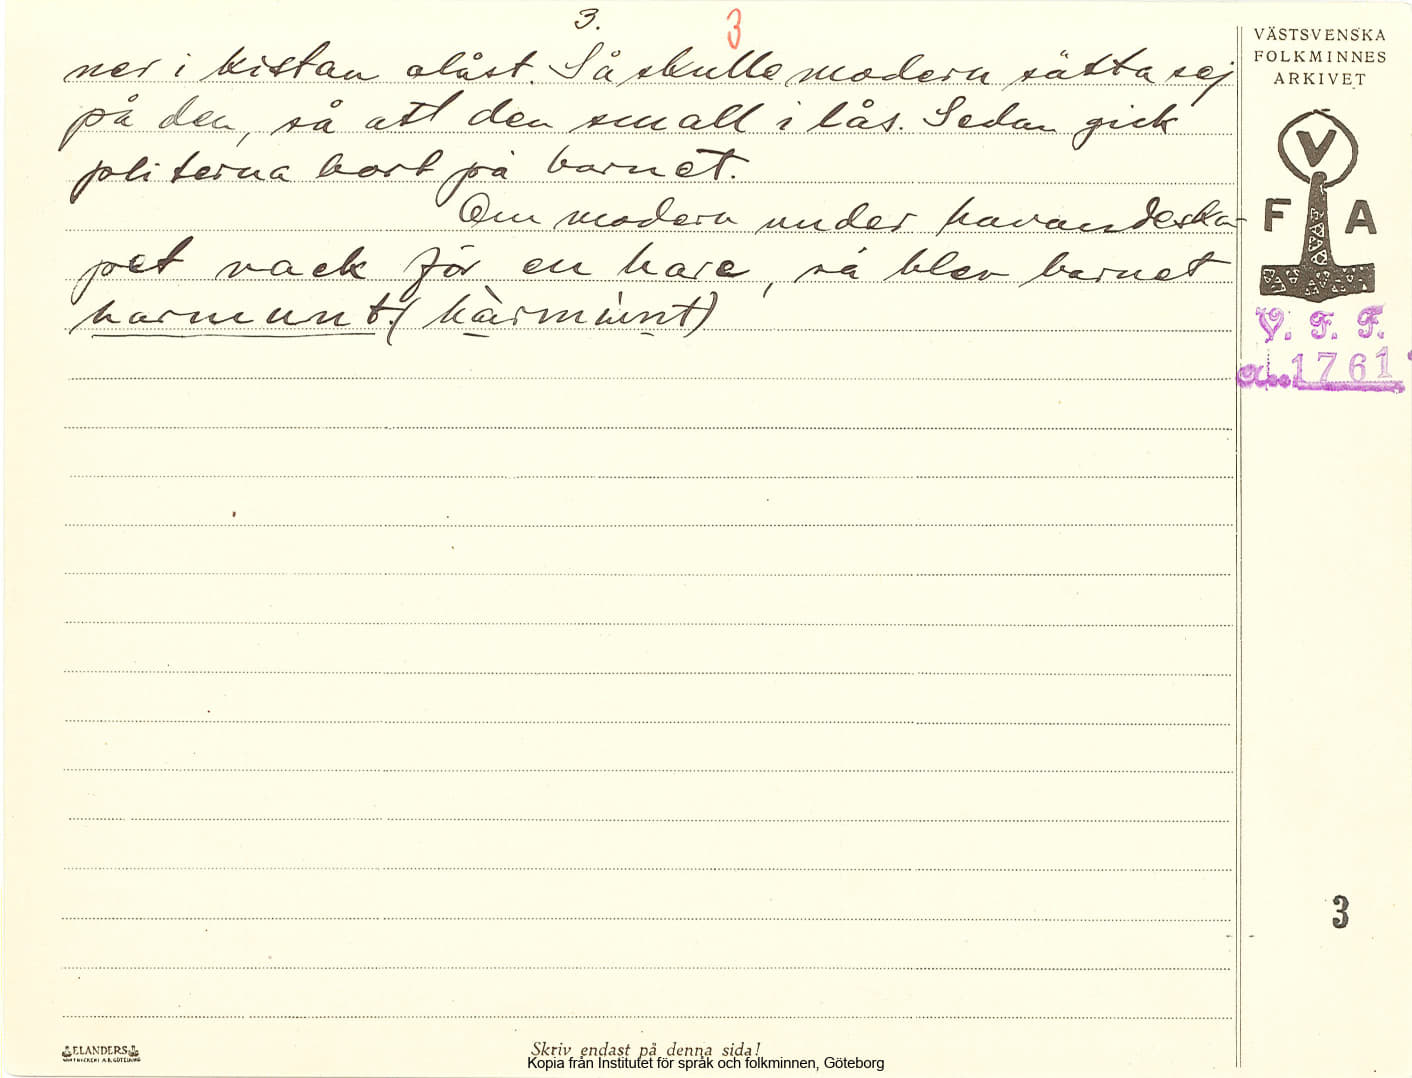 3.
3
ner i kistan olåst. Så skulle modern sätta sej
på den, så att den small i lås. Sedan gick
pliterna bort på barnet.
Om modern under havandeska-
pet vack för en hare, så blev barnet
harmunt. (hàrmùnt)
VÄSTSVENSKA
FOLKMINNES
ARKIVET
V
F A
V. F. F.
1761
3
ELANDERS
Skriv endast på denna sida!
Kopia från Institutet för språk och folkminnen, Göteborg